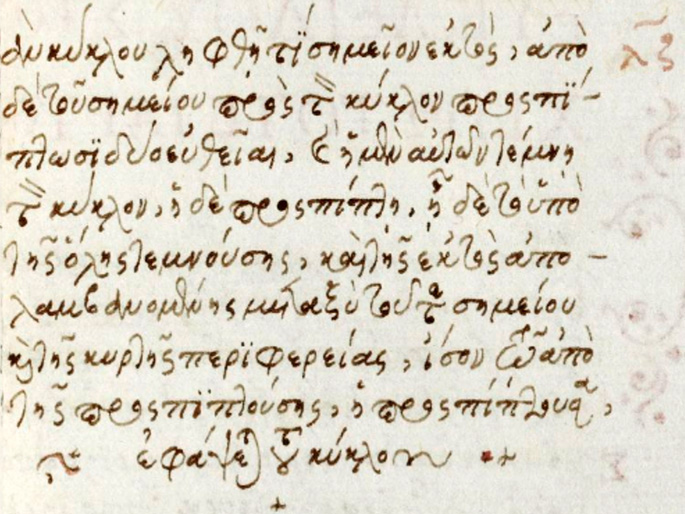 ὰν κύκλου ληφθῆ τϊ σημεῖον ἐκτὸς, ἀπὸ λζ
δὲ τοῦ σημείου πρὸς τὸν κύκλον προσπί-
πτωσϊ δύο εὐθεῖαι, καὶ ἡ μὲν αὐτῶν τέμνη
τὸν κύκλον, ἡ δὲ προσπίπτη, ἦ δὲ τὸ ὑπὸ
τῆς ὅλης τεμνούσης, καὶ τῆς ἐκτὸς ἀπο-
λαμβανομένης μεταξὺ τοῦ τε σημείου
καὶ τῆς κυρτῆς περϊφερείας, ἴσον τῶ ἀπὸ
τῆς προσπϊπτούσης, ἡ προσπίπτουσα,
ἐφάψεται τοῦ κύκλου